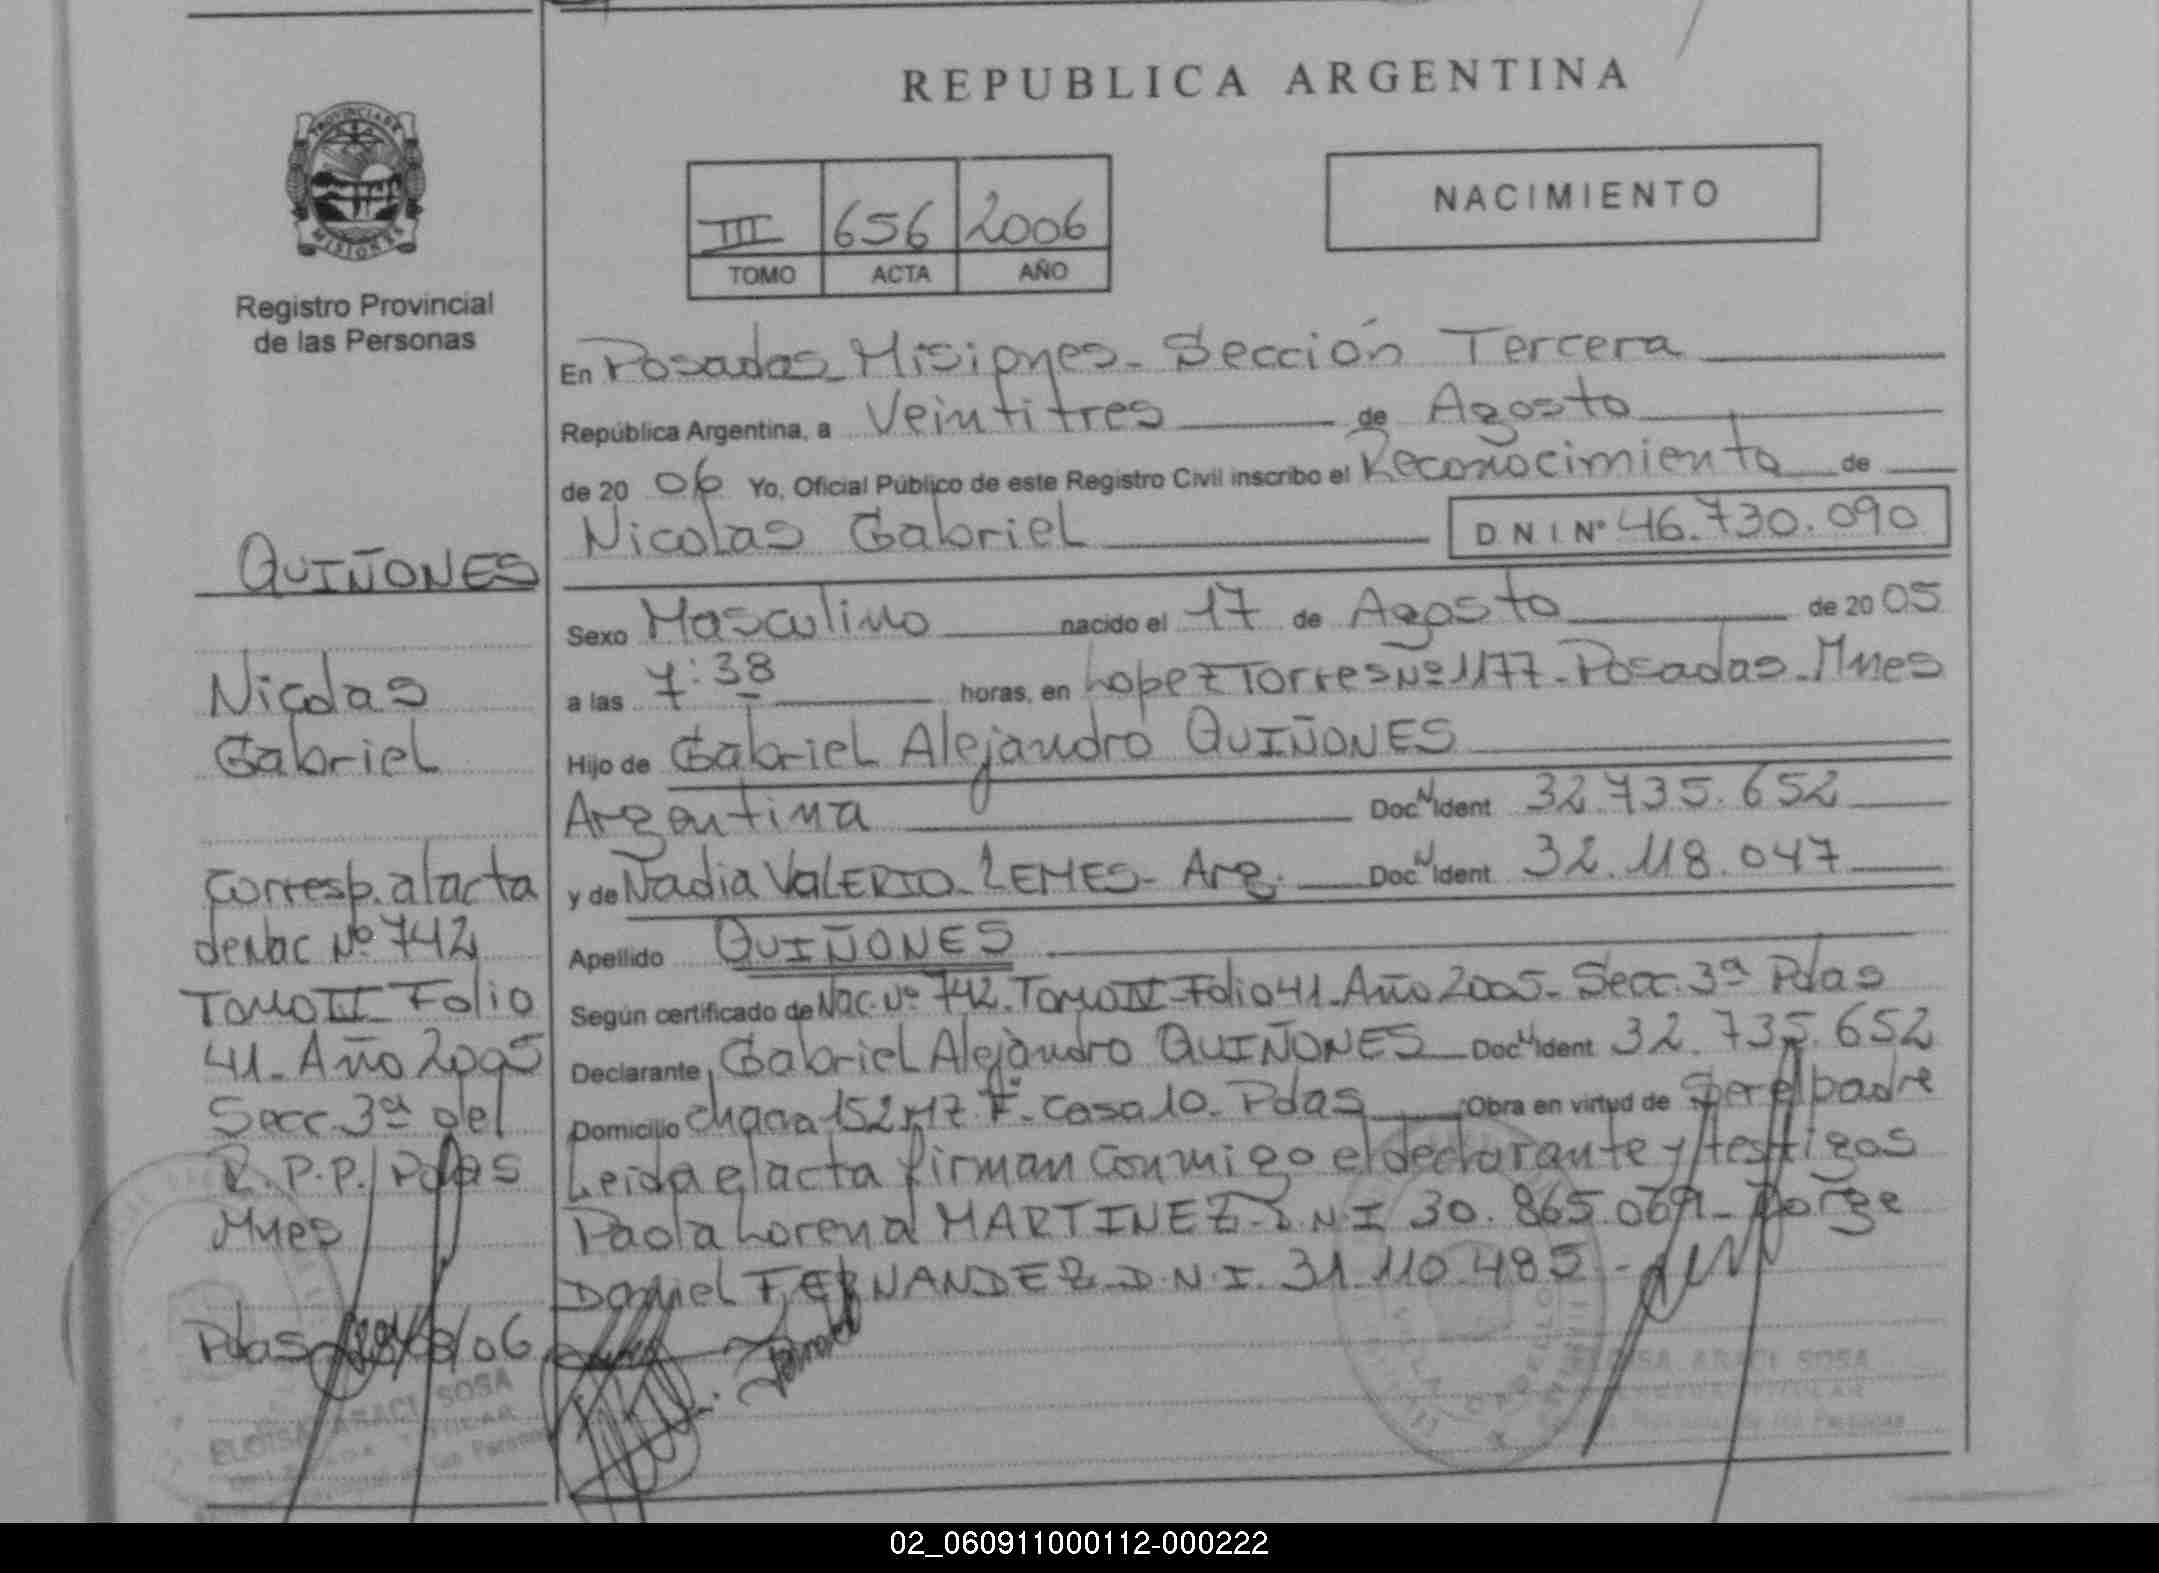 REPUBLICA ARGENTINA
PROVINCIA DE
MISIONES
Registro Provincial
de las Personas
III 656 2006
TOMO ACTA AÑO
NACIMIENTO
QUIÑONES
Nicolas
Gabriel
Corresp. al acta
de Nac Nº 742
Tomo IV Folio
41 - Año 2005
Secc. 3ª del
R.P.P. Pdas
Mnes
Pdas /06
ELOISA ARACI SOSA
En Posadas - Misiones - Sección Tercera
República Argentina, a Veintitres de Agosto
de 20 06 Yo, Oficial Público de este Registro Civil inscribo el Reconocimiento de
Nicolas Gabriel D N I Nº 46.730.090
Sexo Masculino nacido el 17 de Agosto de 20 05
a las 7:38 horas, en Lopez Torres Nº 1177 - Posadas - Mnes
Hijo de Gabriel Alejandro QUIÑONES
Argentina Doc N Ident 32.735.652
y de Nadia VALERIO LEMES - Arg. Doc N Ident 32.118.047
Apellido QUIÑONES
Según certificado de Nac. Nº 742 - Tomo IV - Folio 41 - Año 2005 - Secc. 3ª Pdas
Declarante Gabriel Alejandro QUIÑONES Doc N Ident 32.735.652
Domicilio chacra 152 Mz F - Casa 10 - Pdas Obra en virtud de Ser el padre
Leida el acta firman Conmigo el declarante y testigos
Paola Lorena MARTINEZ - D.N.I 30.865.069 - Jorge
Daniel FERNANDEZ - D.N.I. 31.110.485 -
ELOISA ARACI SOSA
02_060911000112-000222